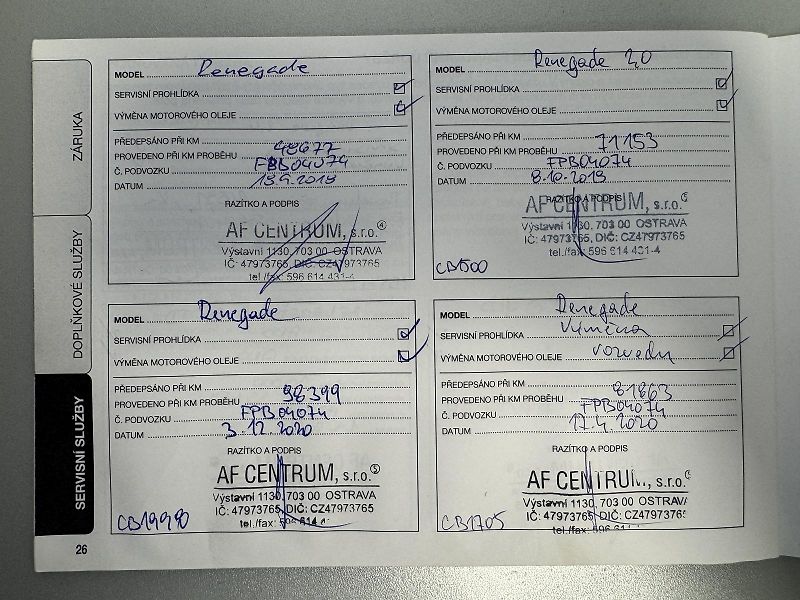 ZÁRUKA
DOPLŇKOVÉ SLUŽBY
SERVISNÍ SLUŽBY
MODEL Renegade
SERVISNÍ PROHLÍDKA
VÝMĚNA MOTOROVÉHO OLEJE
PŘEDEPSÁNO PŘI KM
PROVEDENO PŘI KM PROBĚHU 48677
Č. PODVOZKU FPB04074
DATUM 13.9.2019
RAZÍTKO A PODPIS
AF CENTRUM, s.r.o. ④
Výstavní 1130, 703 00 OSTRAVA
IČ: 47973765, DIČ: CZ47973765
tel./fax: 596 614 431-4
MODEL Renegade 2,0
SERVISNÍ PROHLÍDKA
VÝMĚNA MOTOROVÉHO OLEJE
PŘEDEPSÁNO PŘI KM
PROVEDENO PŘI KM PROBĚHU 71153
Č. PODVOZKU FPB04074
DATUM 8.10.2019
RAZÍTKO A PODPIS
AF CENTRUM, s.r.o.
Výstavní 1130, 703 00 OSTRAVA
IČ: 47973765, DIČ: CZ47973765
tel./fax: 596 614 431-4
CB1500
MODEL Renegade
SERVISNÍ PROHLÍDKA
VÝMĚNA MOTOROVÉHO OLEJE
PŘEDEPSÁNO PŘI KM
PROVEDENO PŘI KM PROBĚHU 98399
Č. PODVOZKU FPB04074
DATUM 3.12.2020
RAZÍTKO A PODPIS
AF CENTRUM, s.r.o. ⑤
Výstavní 1130, 703 00 OSTRAVA
IČ: 47973765, DIČ: CZ47973765
tel./fax: 596 614
MODEL Renegade
Výměna
SERVISNÍ PROHLÍDKA
VÝMĚNA MOTOROVÉHO OLEJE rozvodu
PŘEDEPSÁNO PŘI KM
PROVEDENO PŘI KM PROBĚHU 81863
Č. PODVOZKU FPB04074
DATUM 17.4.2020
RAZÍTKO A PODPIS
AF CENTRUM, s.r.o.
Výstavní 1130, 703 00 OSTRAVA
IČ: 47973765, DIČ: CZ4797376
tel./fax: 596 614
CB1705
26